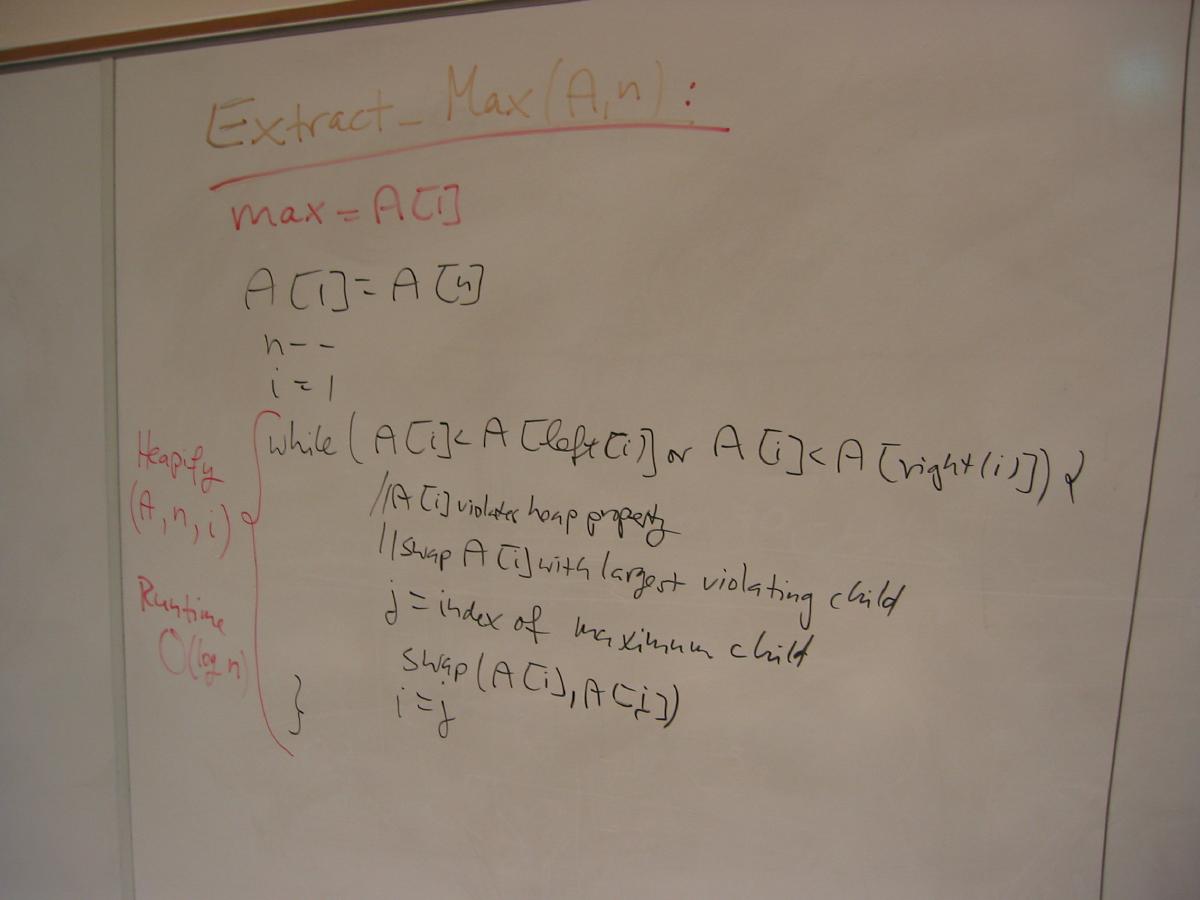 Extract_Max(A,n):
max = A[1]
A[1] = A[n]
n--
i = 1
while (A[i] < A[left(i)] or A[i] < A[right(i)]) {
//A[i] violates heap property
//swap A[i] with largest violating child
j = index of maximum child
swap(A[i], A[j])
i = j
}
Heapify
(A, n, i)
Runtime
O(log n)